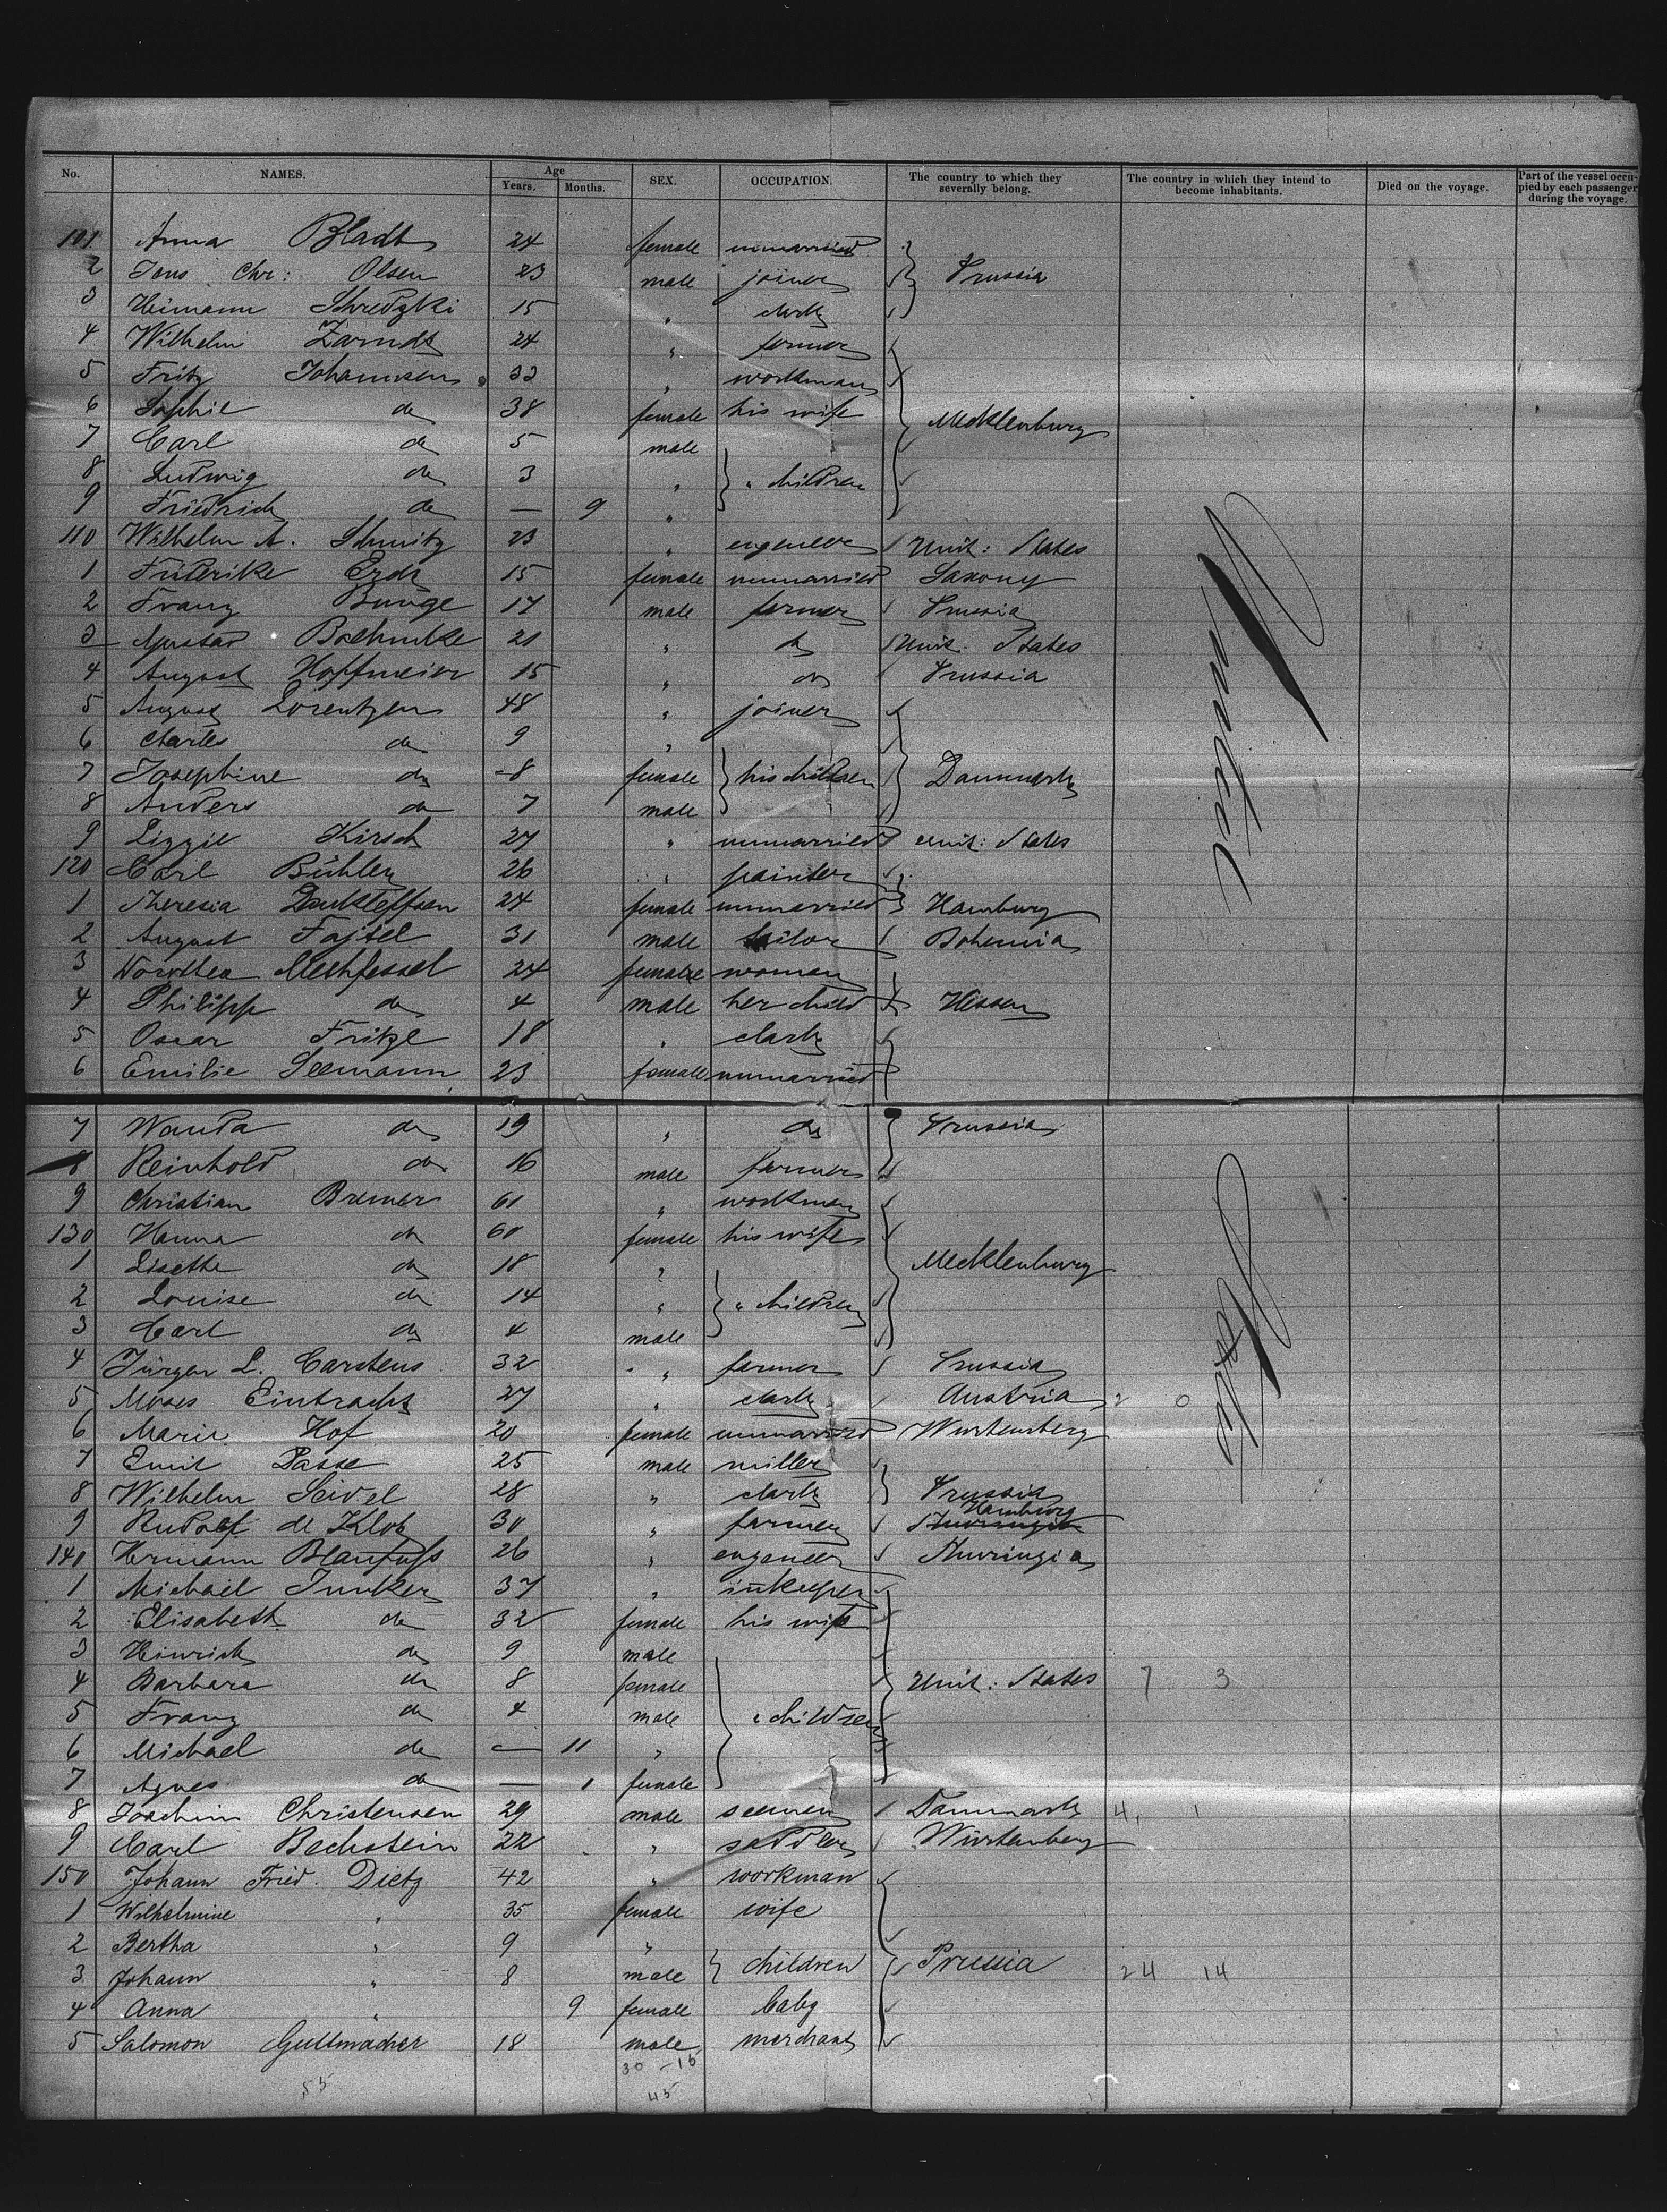 No. NAMES. Age Years. Months. SEX. OCCUPATION. The country to which they severally belong. The country in which they intend to become inhabitants. Died on the voyage. Part of the vessel occupied by each passenger during the voyage.
101 Anna Bladt 24 female unmarried
2 Jens Chr: Olsen 23 male joiner Prussia
3 Heimann 15 " clark
4 Wilhelm Zarndt 24 " farmer
5 Fritz Johannsen 33 " workman
6 Sophie do 38 female his wife Mecklenburg
7 Carl do 5 male
8 Ludwig do 3 " " children
9 Friedrich do — 9 "
110 Wilhelm A. Schmitz 23 " engeneer Unit: States
1 Friderike Erdt 15 female unmarried Saxony
2 Franz Bunge 17 male farmer Prussia
3 Gustav 21 " do Unit: States
4 August Hoffmeier 15 " do Prussia
5 August Lorentzen 48 " joiner
6 Charles do 9 "
7 Josephine do 8 female his children Danmark
8 Anders do 7 male
9 Lizzie Kirsch 27 " unmarried Unit: States
120 Carl Bühler 26 " painter
1 Theresia Dankleffsen 24 female unmarried Hamburg
2 August Fajtel 31 male tailor Bohemia
3 Dorothea Methfessel 24 female woman
4 Philipp do 4 male her child Hessen
5 Oscar Fritze 18 " clark
6 Emilie Seemann 23 female unmarried
7 Wanda do 19 " do Prussia
8 Reinhold do 16 male farmer
9 Christian Bremer 61 " workman
130 Hanna do 60 female his wife
1 Lisette do 18 " Mecklenburg
2 Louise do 14 " " children
3 Carl do 4 male
4 Jürgen L. Carstens 32 " farmer Prussia
5 Moses Eintracht 27 " clark Austria 2 0
6 Marie Hof 20 female unmarried Wurtemberg
7 Emil Passe 25 male miller
8 Wilhelm Seidel 28 " clark Prussia
9 Rudolf de Klot 30 " farmer Hamburg
140 Hermann Blaufuss 26 " engeneer Thuringia
1 Michael Junker 37 " inkeeper
2 Elisabeth do 32 female his wife
3 Heinrich do 9 male
4 Barbara do 8 female Unit: States 7 3
5 Franz do 4 male " children
6 Michael do — 11 "
7 Agnes do — 1 female
8 Joachim Christensen 29 male seemen Danmark 4 1
9 Carl Bechstein 22 " saddler Würtenberg
150 Johann Fried. Dietz 42 " workman
1 Wilhelmine " 35 female wife
2 Bertha " 9 "
3 Johann " 8 male children Prussia 24 14
4 Anna " 9 female baby
5 Salomon Guttmacher 18 male merchant
30 - 15
55 45